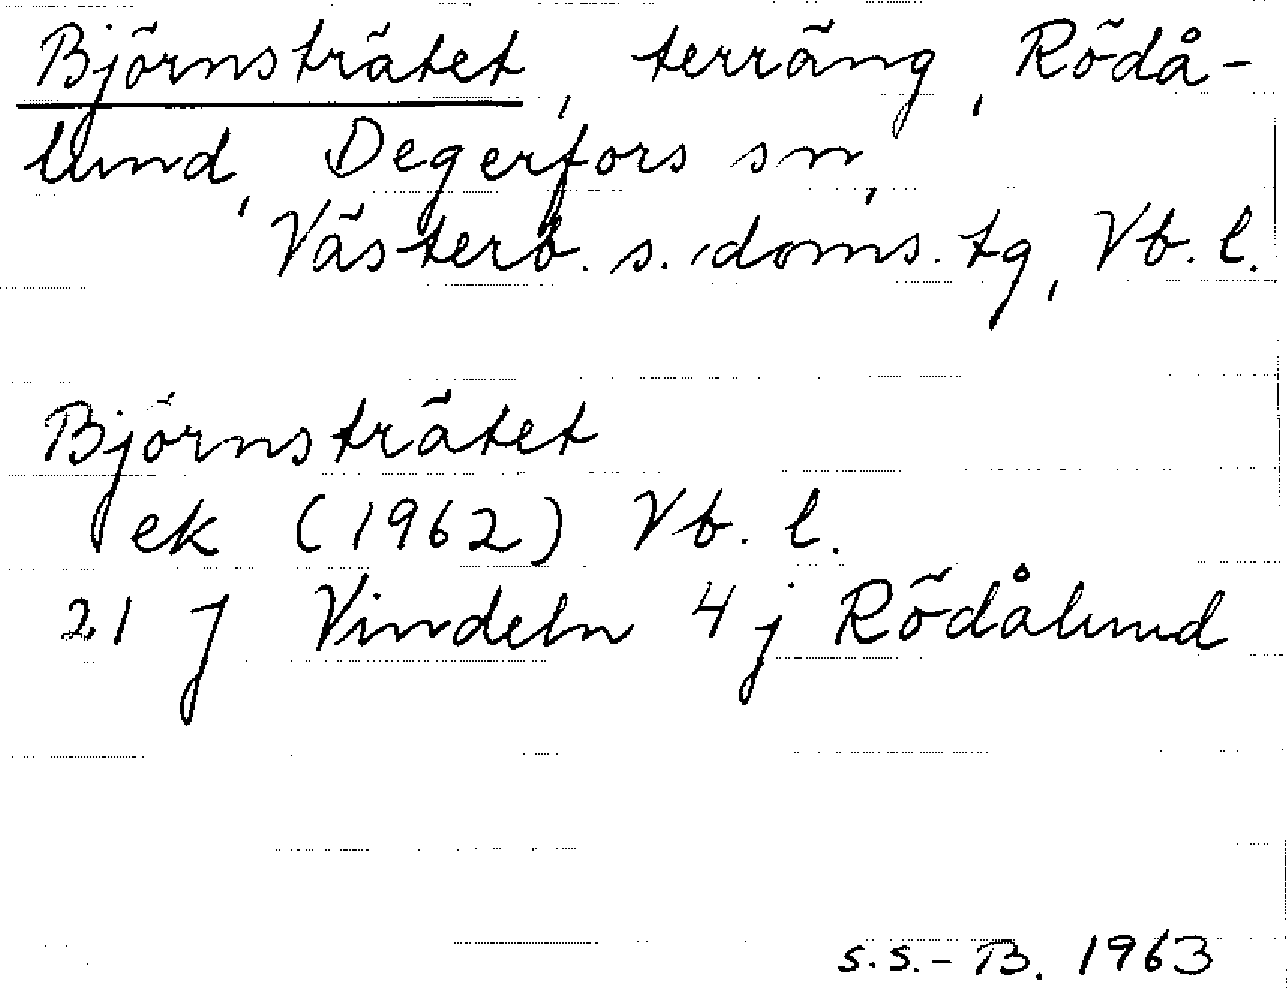 Björnsträtet, terräng, Rödå-
lund, Degerfors sn,
Västerb. s. doms. tg, Vb. l.
Björnsträtet
ek (1962) Vb. l.
21 J Vindeln 4 j Rödålund
S.S.-B. 1963